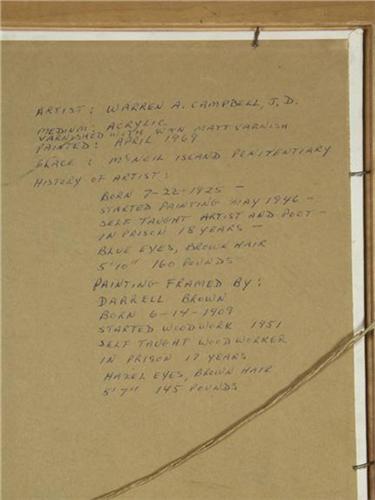 ARTIST: WARREN A. CAMPBELL, J.D.
MEDIUM: ACRYLIC
VARNISHED WITH WINN MATT VARNISH
PAINTED: APRIL 1969
PLACE: McNEIL ISLAND PENITENTIARY
HISTORY OF ARTIST:
BORN 7-22-1925 –
STARTED PAINTING MAY 1946 –
SELF TAUGHT ARTIST AND POET –
IN PRISON 18 YEARS –
BLUE EYES, BROWN HAIR
5'10" 160 POUNDS
PAINTING FRAMED BY:
DARRELL BROWN
BORN 6-14-1909
STARTED WOODWORK 1951
SELF TAUGHT WOODWORKER
IN PRISON 17 YEARS
HAZEL EYES, BROWN HAIR
5'7" 145 POUNDS